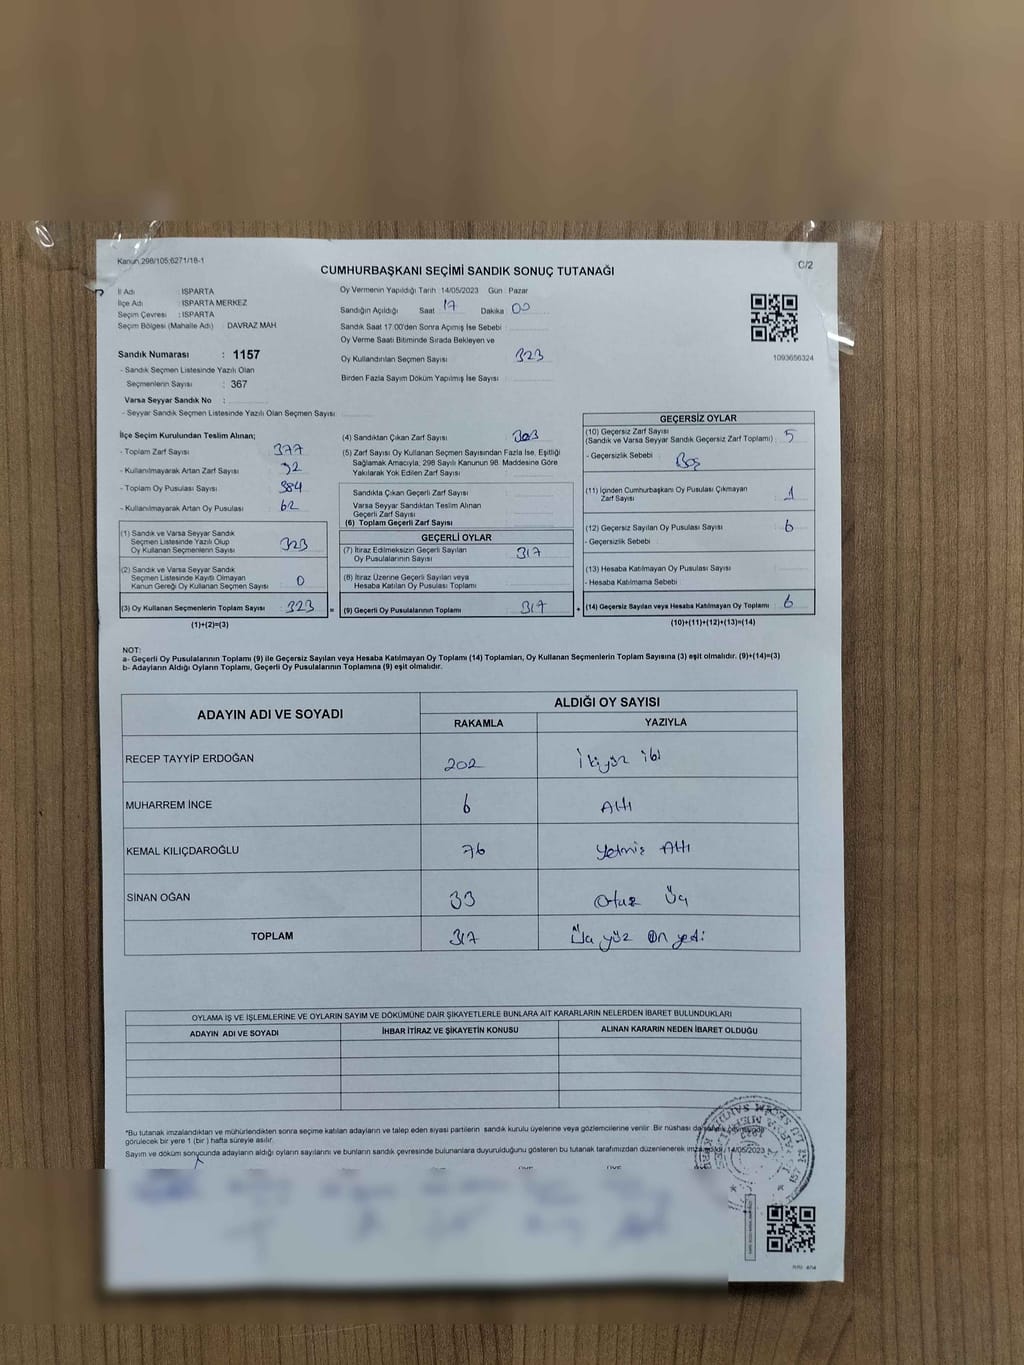 Kanun 298/105:6271/18-1
C/2
CUMHURBAŞKANI SEÇİMİ SANDIK SONUÇ TUTANAĞI
İl Adı : ISPARTA
İlçe Adı : ISPARTA MERKEZ
Seçim Çevresi : ISPARTA
Seçim Bölgesi (Mahalle Adı) : DAVRAZ MAH
Sandık Numarası : 1157
- Sandık Seçmen Listesinde Yazılı Olan
Seçmenlerin Sayısı : 367
Varsa Seyyar Sandık No :
- Seyyar Sandık Seçmen Listesinde Yazılı Olan Seçmen Sayısı :
Oy Vermenin Yapıldığı Tarih : 14/05/2023 Gün : Pazar
Sandığın Açıldığı Saat 17 Dakika 00
Sandık Saat 17.00'den Sonra Açımış İse Sebebi :
Oy Verme Saati Bitiminde Sırada Bekleyen ve
Oy Kullandırılan Seçmen Sayısı : 323
Birden Fazla Sayım Döküm Yapılmış İse Sayısı :
1093656324
İlçe Seçim Kurulundan Teslim Alınan;
- Toplam Zarf Sayısı : 377
- Kullanılmayarak Artan Zarf Sayısı : 32
- Toplam Oy Pusulası Sayısı : 384
- Kullanılmayarak Artan Oy Pusulası : 62
(1) Sandık ve Varsa Seyyar Sandık
Seçmen Listesinde Yazılı Olup
Oy Kullanan Seçmenlerin Sayısı : 323
(2) Sandık ve Varsa Seyyar Sandık
Seçmen Listesinde Kayıtlı Olmayan
Kanun Gereği Oy Kullanan Seçmen Sayısı : 0
(3) Oy Kullanan Seçmenlerin Toplam Sayısı : 323
(1)+(2)=(3)
(4) Sandıktan Çıkan Zarf Sayısı :
(5) Zarf Sayısı Oy Kullanan Seçmen Sayısından Fazla İse, Eşitliği
Sağlamak Amacıyla, 298 Sayılı Kanunun 98. Maddesine Göre
Yakılarak Yok Edilen Zarf Sayısı :
Sandıkta Çıkan Geçerli Zarf Sayısı :
Varsa Seyyar Sandıktan Teslim Alınan
Geçerli Zarf Sayısı :
(6) Toplam Geçerli Zarf Sayısı :
GEÇERLİ OYLAR
(7) İtiraz Edilmeksizin Geçerli Sayılan
Oy Pusulalarının Sayısı : 317
(8) İtiraz Üzerine Geçerli Sayılan veya
Hesaba Katılan Oy Pusulası Toplamı :
= (9) Geçerli Oy Pusulalarının Toplamı : 317 +
GEÇERSİZ OYLAR
(10) Geçersiz Zarf Sayısı
(Sandık ve Varsa Seyyar Sandık Geçersiz Zarf Toplamı) : 5
- Geçersizlik Sebebi : Boş
(11) İçinden Cumhurbaşkanı Oy Pusulası Çıkmayan
Zarf Sayısı : 1
(12) Geçersiz Sayılan Oy Pusulası Sayısı : 6
- Geçersizlik Sebebi :
(13) Hesaba Katılmayan Oy Pusulası Sayısı :
- Hesaba Katılmama Sebebi :
(14) Geçersiz Sayılan veya Hesaba Katılmayan Oy Toplamı : 6
(10)+(11)+(12)+(13)=(14)
NOT:
a- Geçerli Oy Pusulalarının Toplamı (9) ile Geçersiz Sayılan veya Hesaba Katılmayan Oy Toplamı (14) Toplamları, Oy Kullanan Seçmenlerin Toplam Sayısına (3) eşit olmalıdır. (9)+(14)=(3)
b- Adayların Aldığı Oyların Toplamı, Geçerli Oy Pusulalarının Toplamına (9) eşit olmalıdır.
ADAYIN ADI VE SOYADI
ALDIĞI OY SAYISI
RAKAMLA YAZIYLA
RECEP TAYYİP ERDOĞAN 202 İkiyüz iki
MUHARREM İNCE 6 Altı
KEMAL KILIÇDAROĞLU 76 Yetmiş Altı
SİNAN OĞAN 33 Otuz Üç
TOPLAM 317 Üç yüz On yedi
OYLAMA İŞ VE İŞLEMLERİNE VE OYLARIN SAYIM VE DÖKÜMÜNE DAİR ŞİKAYETLERLE BUNLARA AİT KARARLARIN NELERDEN İBARET BULUNDUKLARI
ADAYIN ADI VE SOYADI İHBAR İTİRAZ VE ŞİKAYETİN KONUSU ALINAN KARARIN NEDEN İBARET OLDUĞU
*Bu tutanak imzalandıktan ve mühürlendikten sonra seçime katılan adayların ve talep eden siyasi partilerin sandık kurulu üyelerine veya gözlemcilerine verilir. Bir nüshası da
görülecek bir yere 1 (bir ) hafta süreyle asılır.
Sayım ve döküm sonucunda adayların aldığı oyların sayılarını ve bunların sandık çevresinde bulunanlara duyurulduğunu gösteren bu tutanak tarafımızdan düzenlenerek imzalandı. 14/05/2023